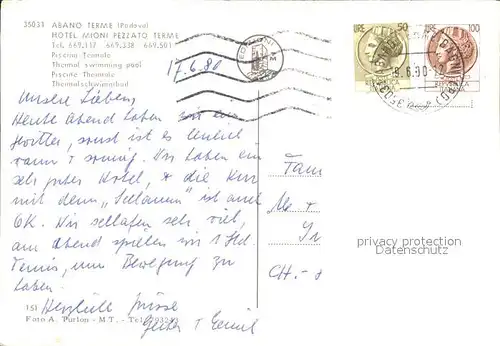 35031 ABANO TERME (Padova)
HOTEL MIONI PEZZATO TERME
Tel. 669.117 669.338 669.501
Piscina Termale
Thermal swimming pool
Piscine Thermale
Thermalschwimmbad
LIRE 50
LIRE 100
17.6.80
Unsere Lieben,
Heute Abend haben wir ein
Gewitter, sonst ist es
warm + sonnig. Wir haben ein
sehr gutes Hotel, & die Kur
mit dem "Schlamm" ist auch
OK. Wir schlafen sehr viel,
am Abend spielen wir 1 Std.
Tennis, um Bewegung zu
haben.
Herzliche Grüsse
Fam
CH.-8
privacy protection
Datenschutz
151
Foto A. Parlon - M.T. - Tel.